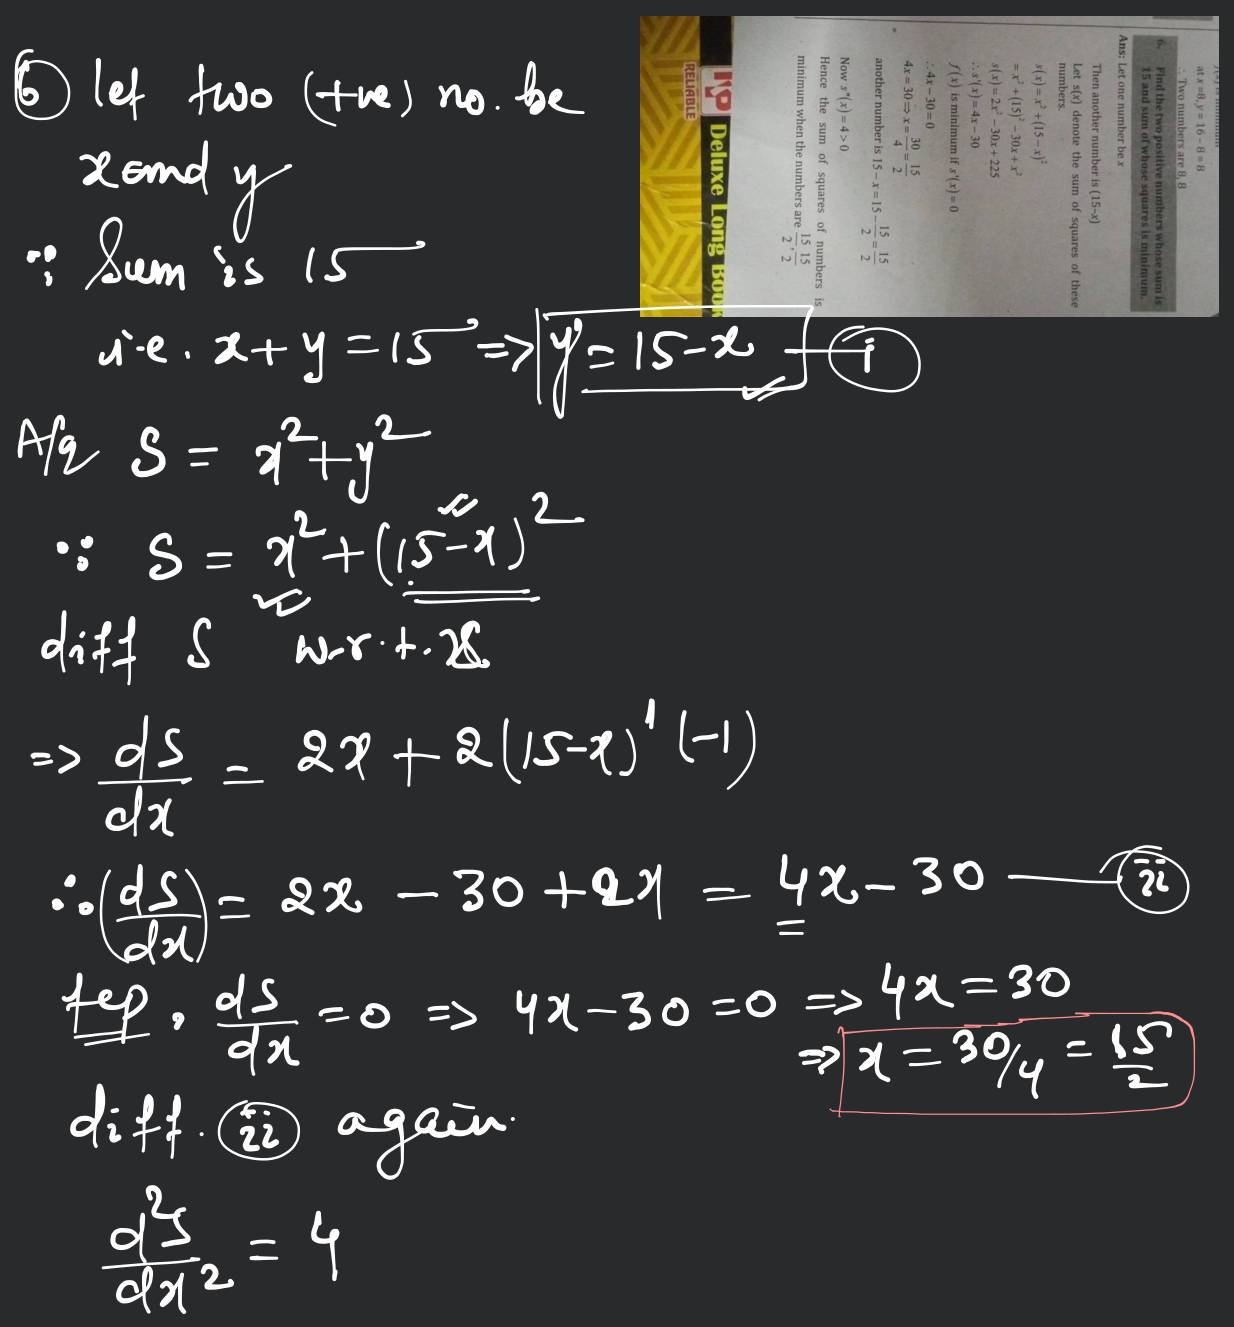 6 let two (+ve) no. be
x and y
∵ Sum is 15
i.e. x+y=15 => y=15-x — i
A/q S = x²+y²
∵ S = x²+(15-x)²
diff S w.r.t. x
=> dS/dx = 2x + 2(15-x)¹(-1)
∴ (dS/dx) = 2x - 30 + 2x = 4x - 30 — ii
fep, dS/dx = 0 => 4x-30=0 => 4x=30
=> x = 30/4 = 15/2
diff. ii again.
d²S/dx² = 4
at x=8, y=16-8=8
∴ Two numbers are 8, 8
6. Find the two positive numbers whose sum is
15 and sum of whose squares is minimum.
Ans: Let one number be x
Then another number is (15-x)
Let s(x) denote the sum of squares of these
numbers.
s(x)=x²+(15-x)²
=x²+(15)²-30x+x²
s(x)=2x²-30x+225
∴ s'(x)=4x-30
f(x) is minimum if s'(x)=0
∴ 4x-30=0
4x=30⇒x=30/4=15/2
another number is 15-x=15-15/2=15/2
Now s"(x)=4>0
Hence the sum of squares of numbers is
minimum when the numbers are 15/2, 15/2
Deluxe Long Book
RELIABLE